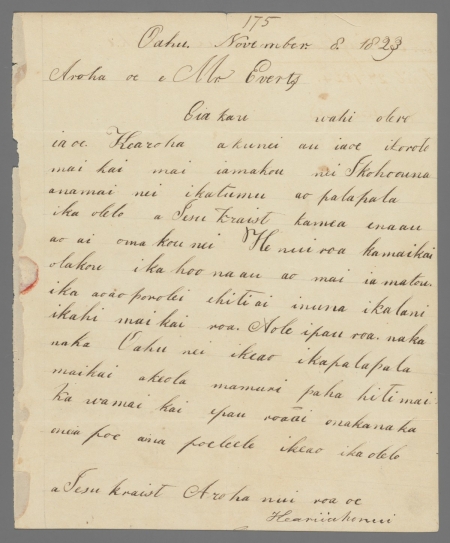 175
Oahu. November. 8. 1823
Aroha oe e Mr Everts
Eia kau wahi olelo
iaoe. Kearoha akunei au iaoe ikorote
mai kai mai iamakou nei I kohoouna
anamai nei ikatumu ao palapala
ika olelo a Jesu Kraist kamea enaau
ao ai omakou nei He nui roa kamaikai
olakou ika hoo naau ao mai iamakou.
ika aoao porolei ihiti ai iruna ikalani
ikahi maikai roa. Aole ipau roa. naka
naka Oahu nei ikeao ikapalapala
maikai akeola mamuri paha hiti mai
ka wa mai kai epau roaai onakanaka
onea poe aina poeleele ikeao ika olelo
a Jesu Kraist Aroha nui roa oe
Keariiahonui